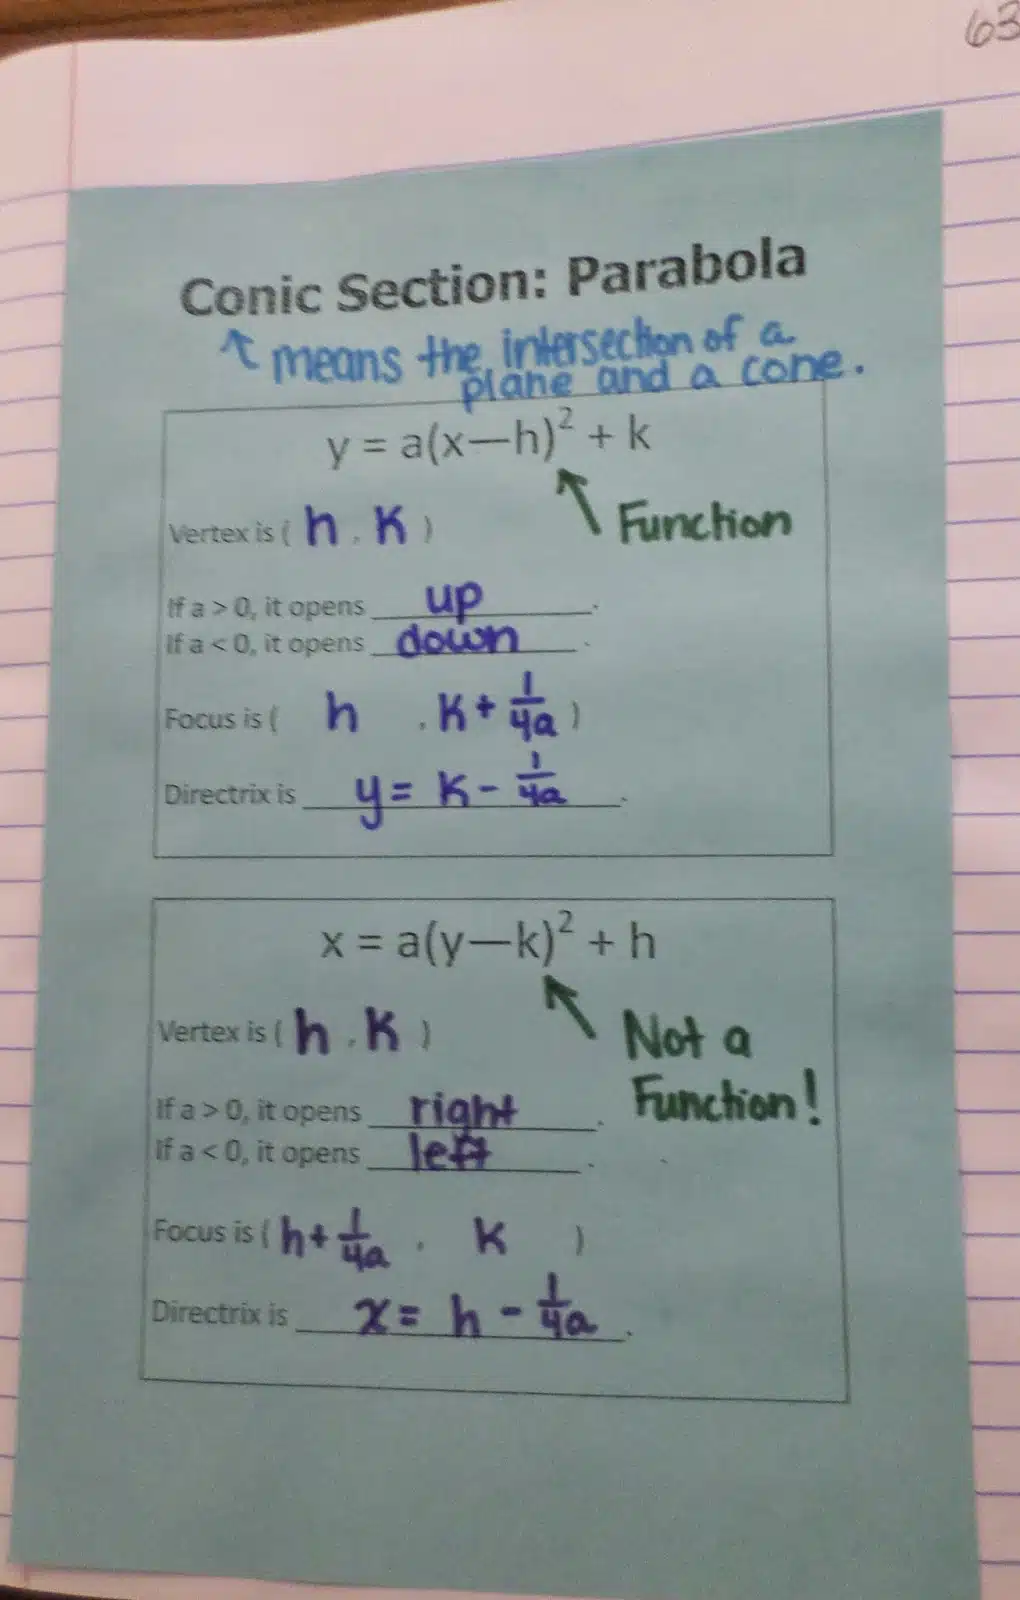 63
Conic Section: Parabola
↖ means the intersection of a
plane and a cone.
y = a(x—h)² + k
Vertex is ( h , K )
Function
If a > 0, it opens up.
If a < 0, it opens down.
Focus is ( h , K + 1/4a )
Directrix is y = K - 1/4a.
x = a(y—k)² + h
Vertex is ( h , K )
Not a
Function!
If a > 0, it opens right.
If a < 0, it opens left.
Focus is ( h + 1/4a , K )
Directrix is x = h - 1/4a.